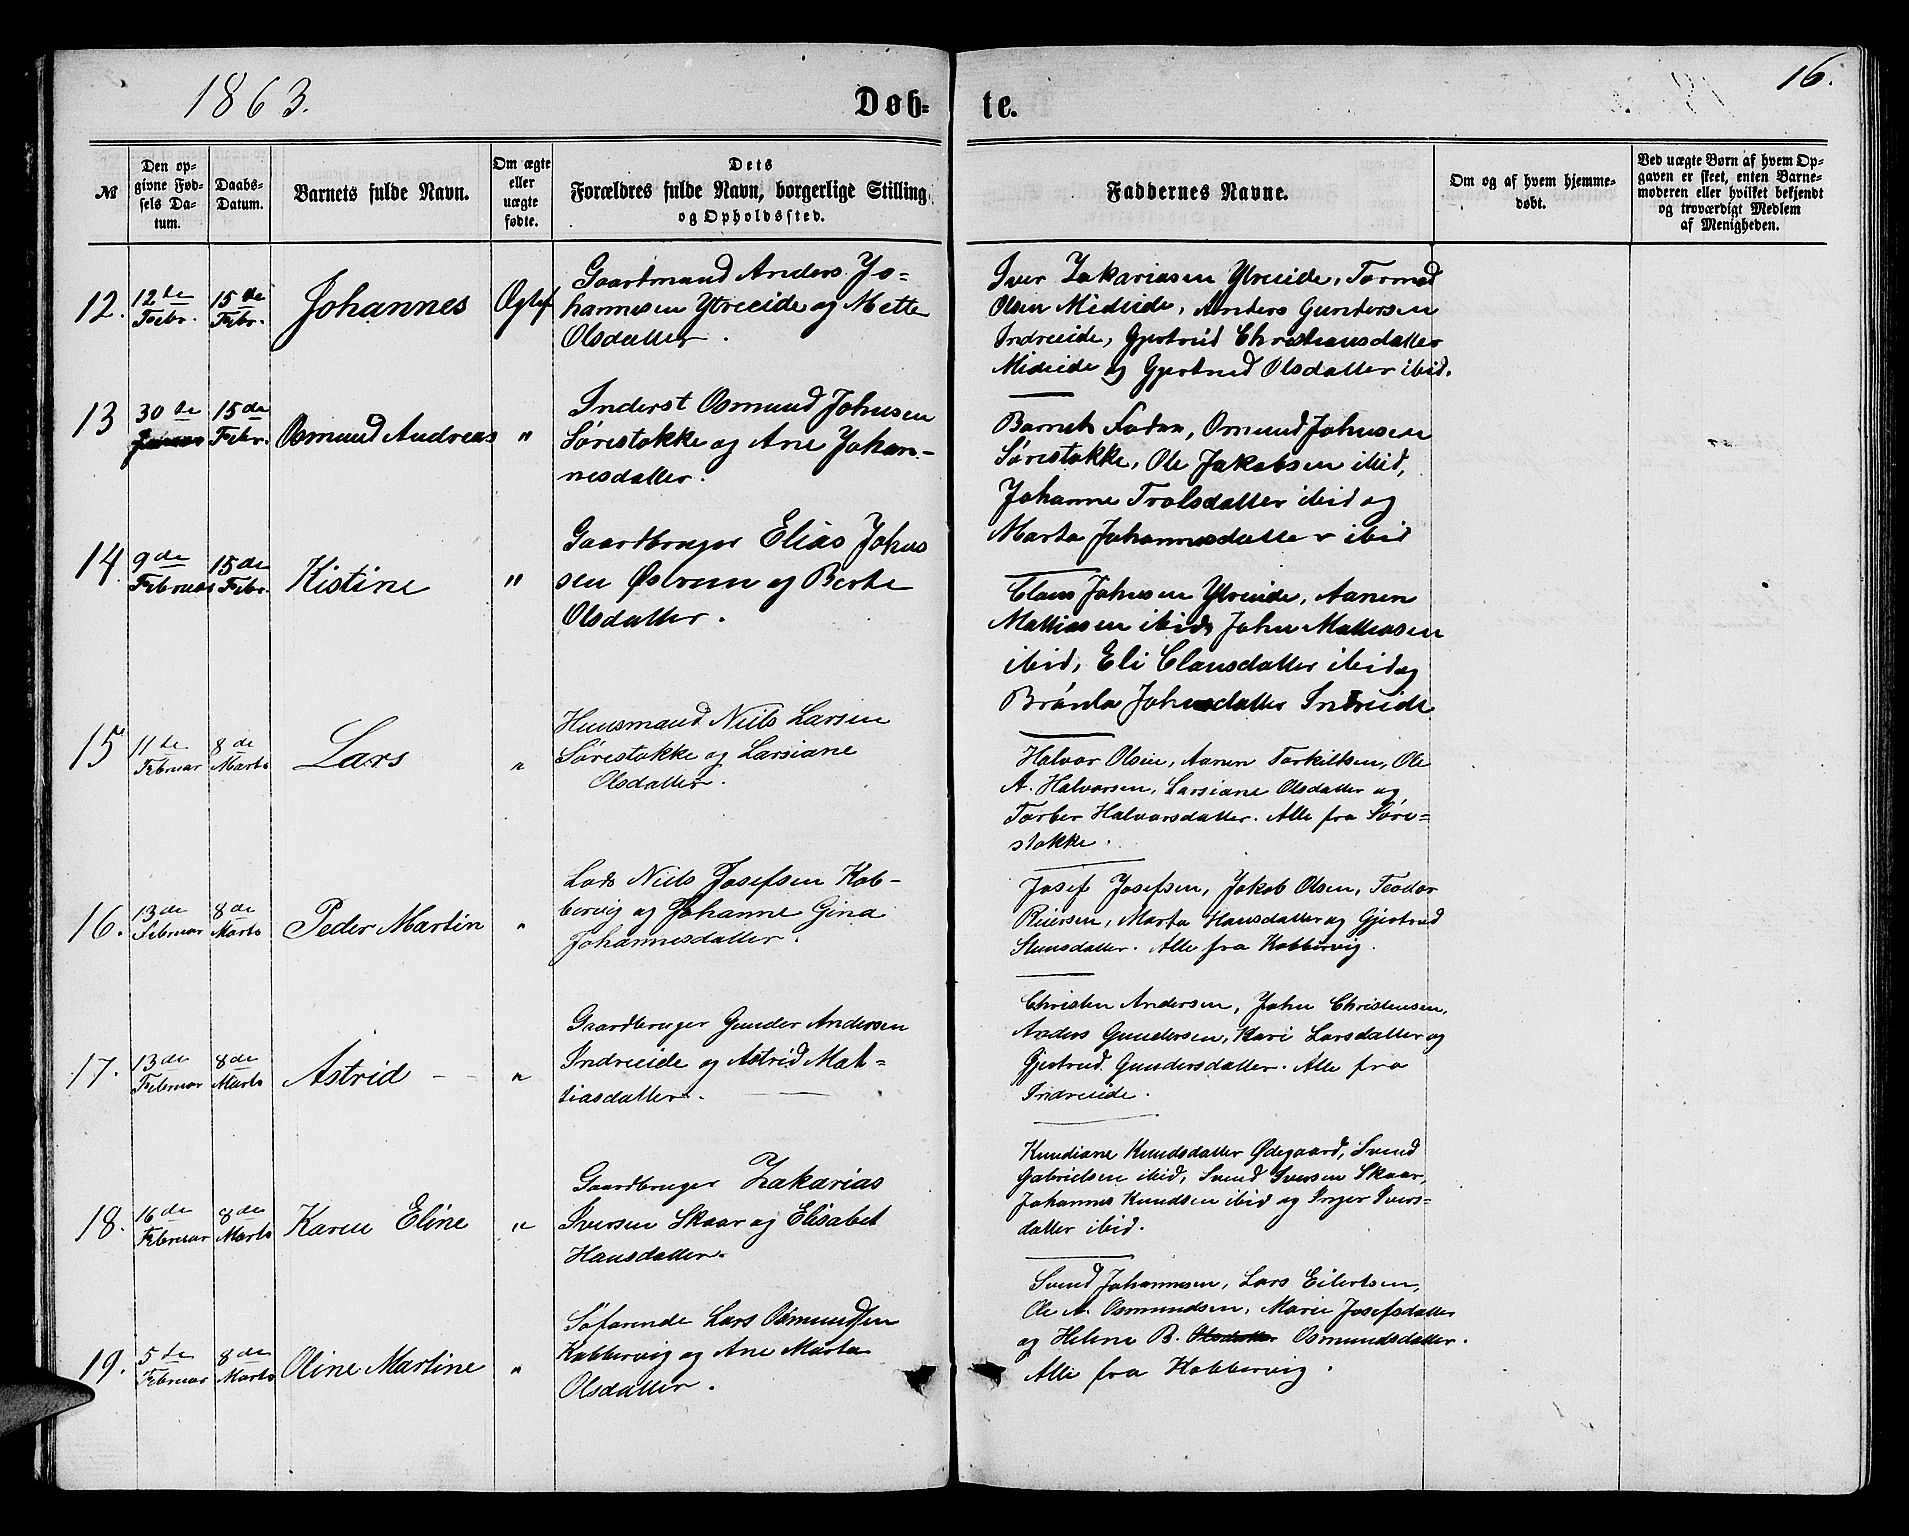 1863.
Døb-
te.
16.
№
Den op-
givne Fød-
sels Da-
tum.
Daabs-
Datum.
Barnets fulde Navn.
Om ægte
eller
uægte
fødte.
Dets
Forældres fulde Navn, borgerlige Stilling
og Opholdssted.
Faddernes Navne.
Om og af hvem hjemme-
døbt.
Ved uægte Børn af hvem Op-
gaven er skeet, enten Barne-
moderen eller hvilket bekjendt
og troværdigt Medlem
af Menigheden.
12.
12te
Febr.
15de
Febr.
Johannes
Ægtef
Gaardmand Anders Jo-
hannesen Ytreeide og Mette
Olsdatter.
Iver Zakariasen Ytreeide, Tormod
Olsen Mideide, Anders Gundersen
Indreeide, Gjertrud Christiansdatter
Mideide og Gjertrud Olsdatter ibid.
13
30te
Januar
15de
Febr.
Osmund Andreas
"
Inderst Osmund Johnsen
Sørestokke og Ane Johan-
nesdatter.
Barnets Fader, Osmund Johnsen
Sørestokke, Ole Jakobsen ibid,
Johanne Trolsdatter ibid og
Marta Johannesdatter ibid
14.
9de
Februar
15de
Febr.
Kistine
"
Gaardbruger Elias Johns
sen Østrem og Berte
Olsdatter.
Claus Johnsen Ytreeide, Aanen
Mattiasen ibid, John Mattiasen
ibid, Eli Clausdatter ibid og
Brønla Johnsdatter Indreeide
15
11te
Februar
8de
Marts
Lars
"
Huusmand Niels Larsen
Sørestokke og Larsiane
Olsdatter.
Halvor Olsen, Aanen Torkildsen, Ole
A. Halvorsen, Larsiane Olsdatter og
Torber Halvorsdatter. Alle fra Søre-
stokke.
16.
13de
Februar
8de
Marts
Peder Martin
"
Lods Niels Josefsen Kob-
bervig og Johanne Gina
Johannesdatter.
Josef Josefsen, Jakob Olsen, Teodor
Reiersen, Marta Hansdatter og Gjertrud
Stensdatter. Alle fra Kobbervig.
17.
13de
Februar
8de
Marts
Astrid
"
Gaardbruger Gunder Andersen
Indreeide og Astrid Mat-
tiasdatter.
Christen Andersen, John Christensen,
Anders Gundersen, Kari Larsdatter og
Gjertrud Gundersdatter. Alle fra
Indreeide.
18.
16de
Februar
8de
Marts
Karen Eline
"
Gaardbruger Zakarias
Iversen Skaar og Elisabet
Hansdatter.
Knudiane Knudsdatter Ødegaard, Svend
Gabrielsen ibid, Svend Iversen Skaar,
Johannes Knudsen ibid og Inger Ivers-
datter ibid.
19.
5te
Februar
8de
Marts
Oline Martine
"
Søfarende Lars Osmundsen
Kobbervig og Ane Marta
Olsdatter.
Svend Johannesen, Lars Eilertsen,
Ole A. Osmundsen, Marie Josefsdatter
og Helene B. Olsdatter Osmundsdatter.
Alle fra Kobbervig.